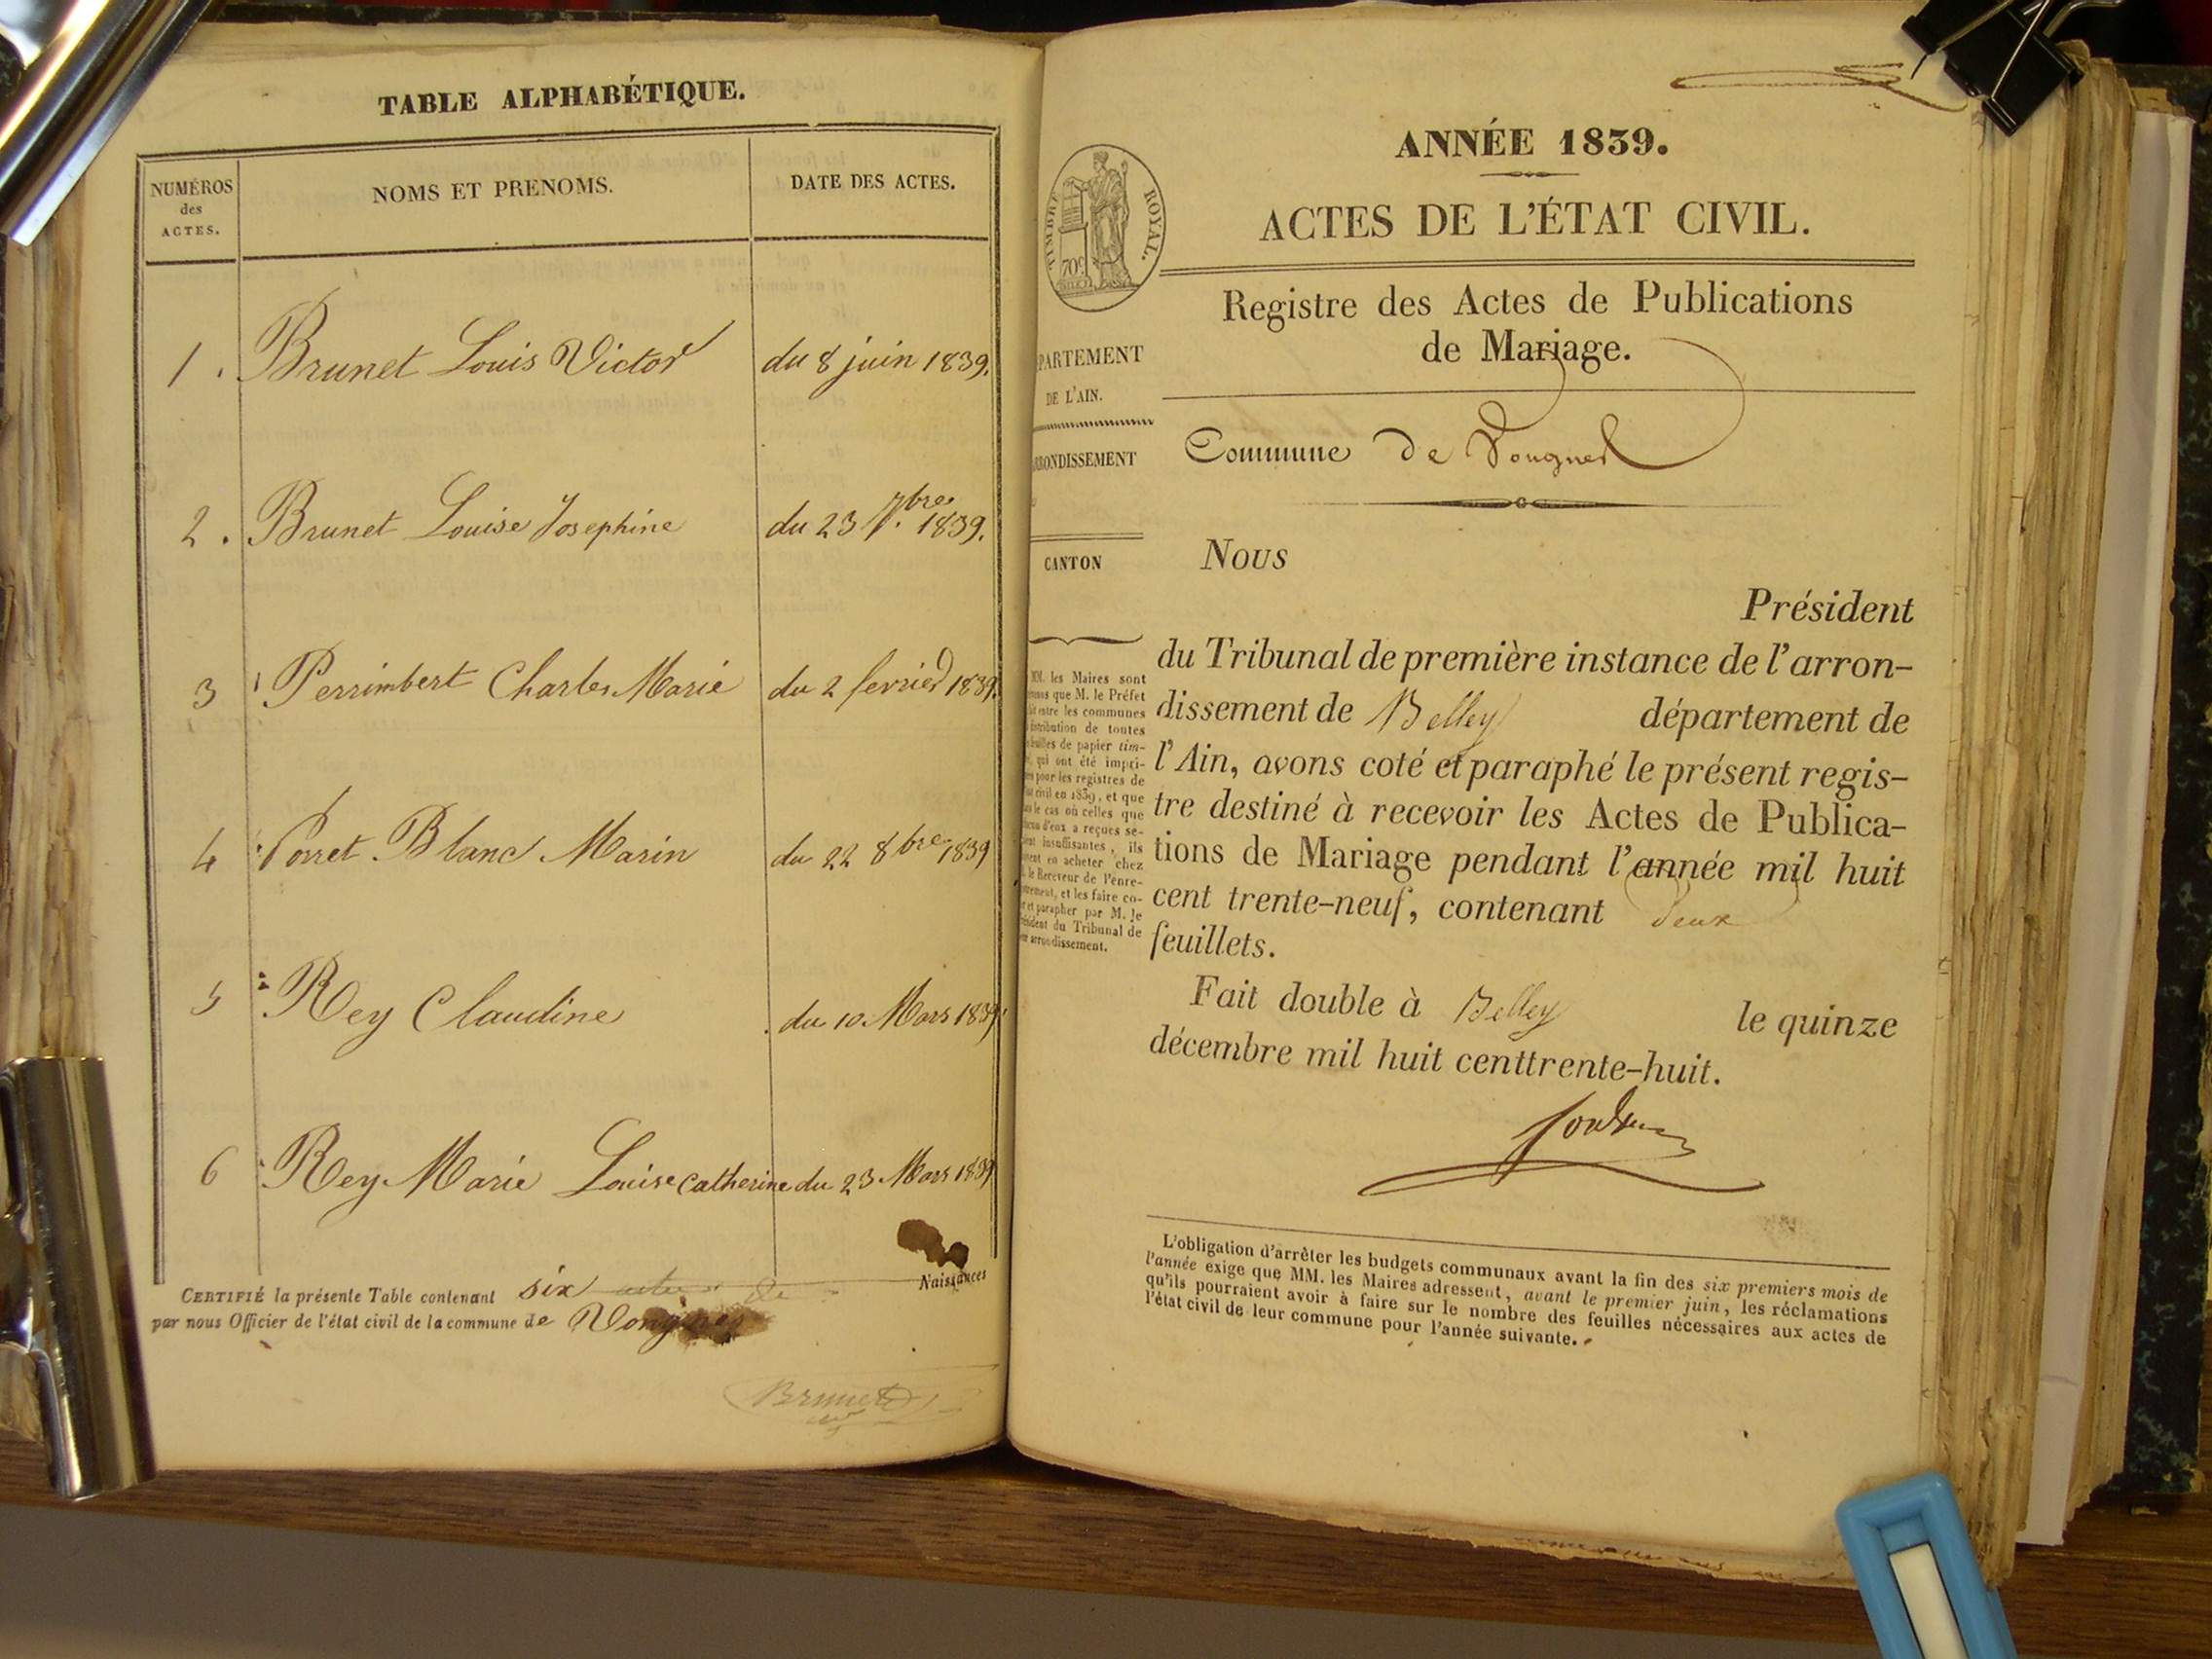 TABLE ALPHABÉTIQUE.
NUMÉROS
des
ACTES.
NOMS ET PRENOMS.
DATE DES ACTES.
1. Brunet Louis Victor du 8 juin 1839.
2. Brunet Louise Josephine du 23 7.bre 1839.
3 Perrimbert Charles Marie du 2 fevrier 1839.
4 Porret Blanc Marin du 22 8bre 1839
5 Rey Claudine du 10 Mars 1839
6 Rey Marie Louise Catherine du 23 Mars 1839
CERTIFIÉ la présente Table contenant six actes de Naissances
par nous Officier de l'état civil de la commune de Vongnes
Brunet
TIMBRE ROYAL.
70c
ANNÉE 1839.
ACTES DE L'ÉTAT CIVIL.
Registre des Actes de Publications
de Mariage.
PARTEMENT
DE L'AIN.
RONDISSEMENT
CANTON
Commune de Vongnes
Nous
Président
du Tribunal de première instance de l'arron-
dissement de Belley département de
l'Ain, avons coté et paraphé le présent regis-
tre destiné à recevoir les Actes de Publica-
tions de Mariage pendant l'année mil huit
cent trente-neuf, contenant deux
feuillets.
Fait double à Belley le quinze
décembre mil huit centtrente-huit.
MM. les Maires sont
que M. le Préfet
entre les communes
distribution de toutes
feuilles de papier tim-
qui ont été impri-
pour les registres de
civil en 1839, et que
le cas où celles que
d'eux a reçues se-
insuffisantes, ils
en acheter chez
le Receveur de l'enre-
et les faire co-
et parapher par M. le
Président du Tribunal de
arrondissement.
L'obligation d'arrêter les budgets communaux avant la fin des six premiers mois de
l'année exige que MM. les Maires adressent, avant le premier juin, les réclamations
qu'ils pourraient avoir à faire sur le nombre des feuilles nécessaires aux actes de
l'état civil de leur commune pour l'année suivante.